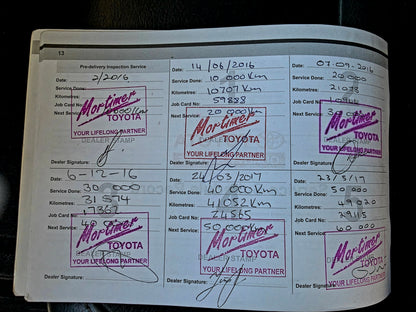 13
Pre-delivery Inspection Service
Date: 2/2016
Service Done:
Kilometres:
Job Card No:
Next Service:
Mortimer
TOYOTA
YOUR LIFELONG PARTNER
DEALER STAMP
Dealer Signature:
Date: 14/06/2016
Service Done: 10 000 Km
Kilometres: 10707 Km
Job Card No: 59888
Next Service: 20 000 Km
Mortimer
TOYOTA
YOUR LIFELONG PARTNER
DEALER STAMP
Dealer Signature:
Date: 07-09-2016
Service Done: 20 000
Kilometres: 21073
Job Card No:
Next Service:
Mortimer
TOYOTA
YOUR LIFELONG PARTNER
Dealer Signature:
Date: 6-12-16
Service Done: 30 000
Kilometres: 31 574
Job Card No: 17367
Next Service:
Mortimer
TOYOTA
DEALER STAMP
YOUR LIFELONG PARTNER
Dealer Signature:
Date: 24/03/2017
Service Done: 40 000 Km
Kilometres: 41052 Km
Job Card No: 24565
Next Service: 50 000 Km
Mortimer
TOYOTA
DEALER STAMP
YOUR LIFELONG PARTNER
Dealer Signature:
Date: 23/5/17
Service Done: 50 000
Kilometres: 49 020
Job Card No: 29115
Next Service: 60 000
Mortimer
TOYOTA
YOUR LIFELONG PARTNER
Dealer Signature: